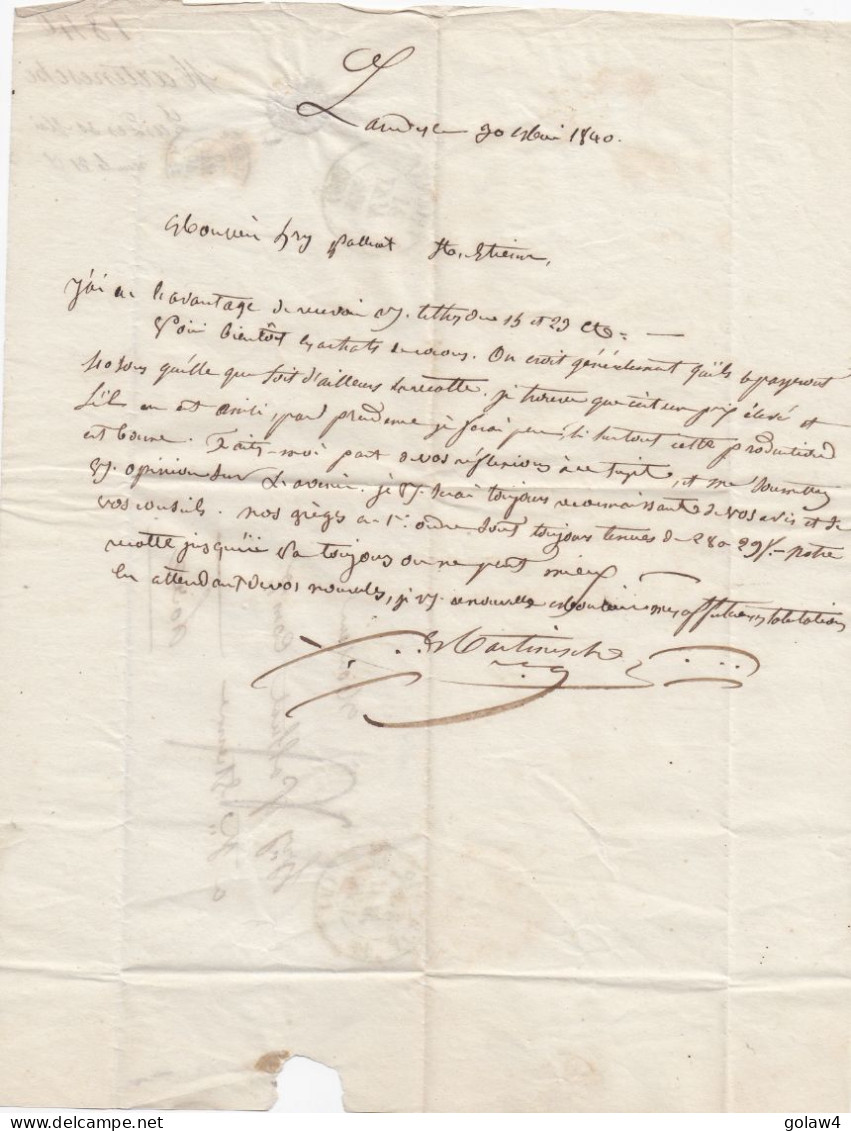 30 Mai 1840.
Monsieur Palliat St. Etienne,
J'ai eu l'avantage de recevoir vos lettres des 15 et 23 Ct. —
Voici bientôt les achats de cocons. On croit généralement qu'ils se payeront
quelle que soit d'ailleurs la récolte. je trouve que c'est un prix élevé et
s'il en est ainsi, par prudence je ferai peu si surtout cette production
est bonne. Faites-moi part de vos réflexions à ce sujet, et me soumettez
vs. opinion sur l'avenir. je vs. serai toujours reconnaissant de vos avis et de
vos conseils. nos grèges de 1er ordre sont toujours tenues de 28 a 29f.— notre
récolte jusqu'ici va toujours on ne peut mieux
En attendant de vos nouvelles, je vs. renouvelle Monsieur mes affectueuses salutations
Martinesche
golaw4